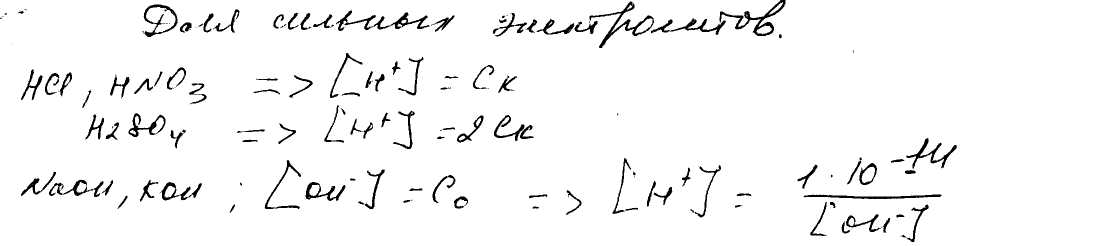 Для сильных электролитов.
HCl, HNO₃ => [H⁺] = Cк
H₂SO₄ => [H⁺] = 2Cк
NaOH, KOH; [OH⁻] = C₀ => [H⁺] = 1·10⁻¹⁴/[OH⁻]